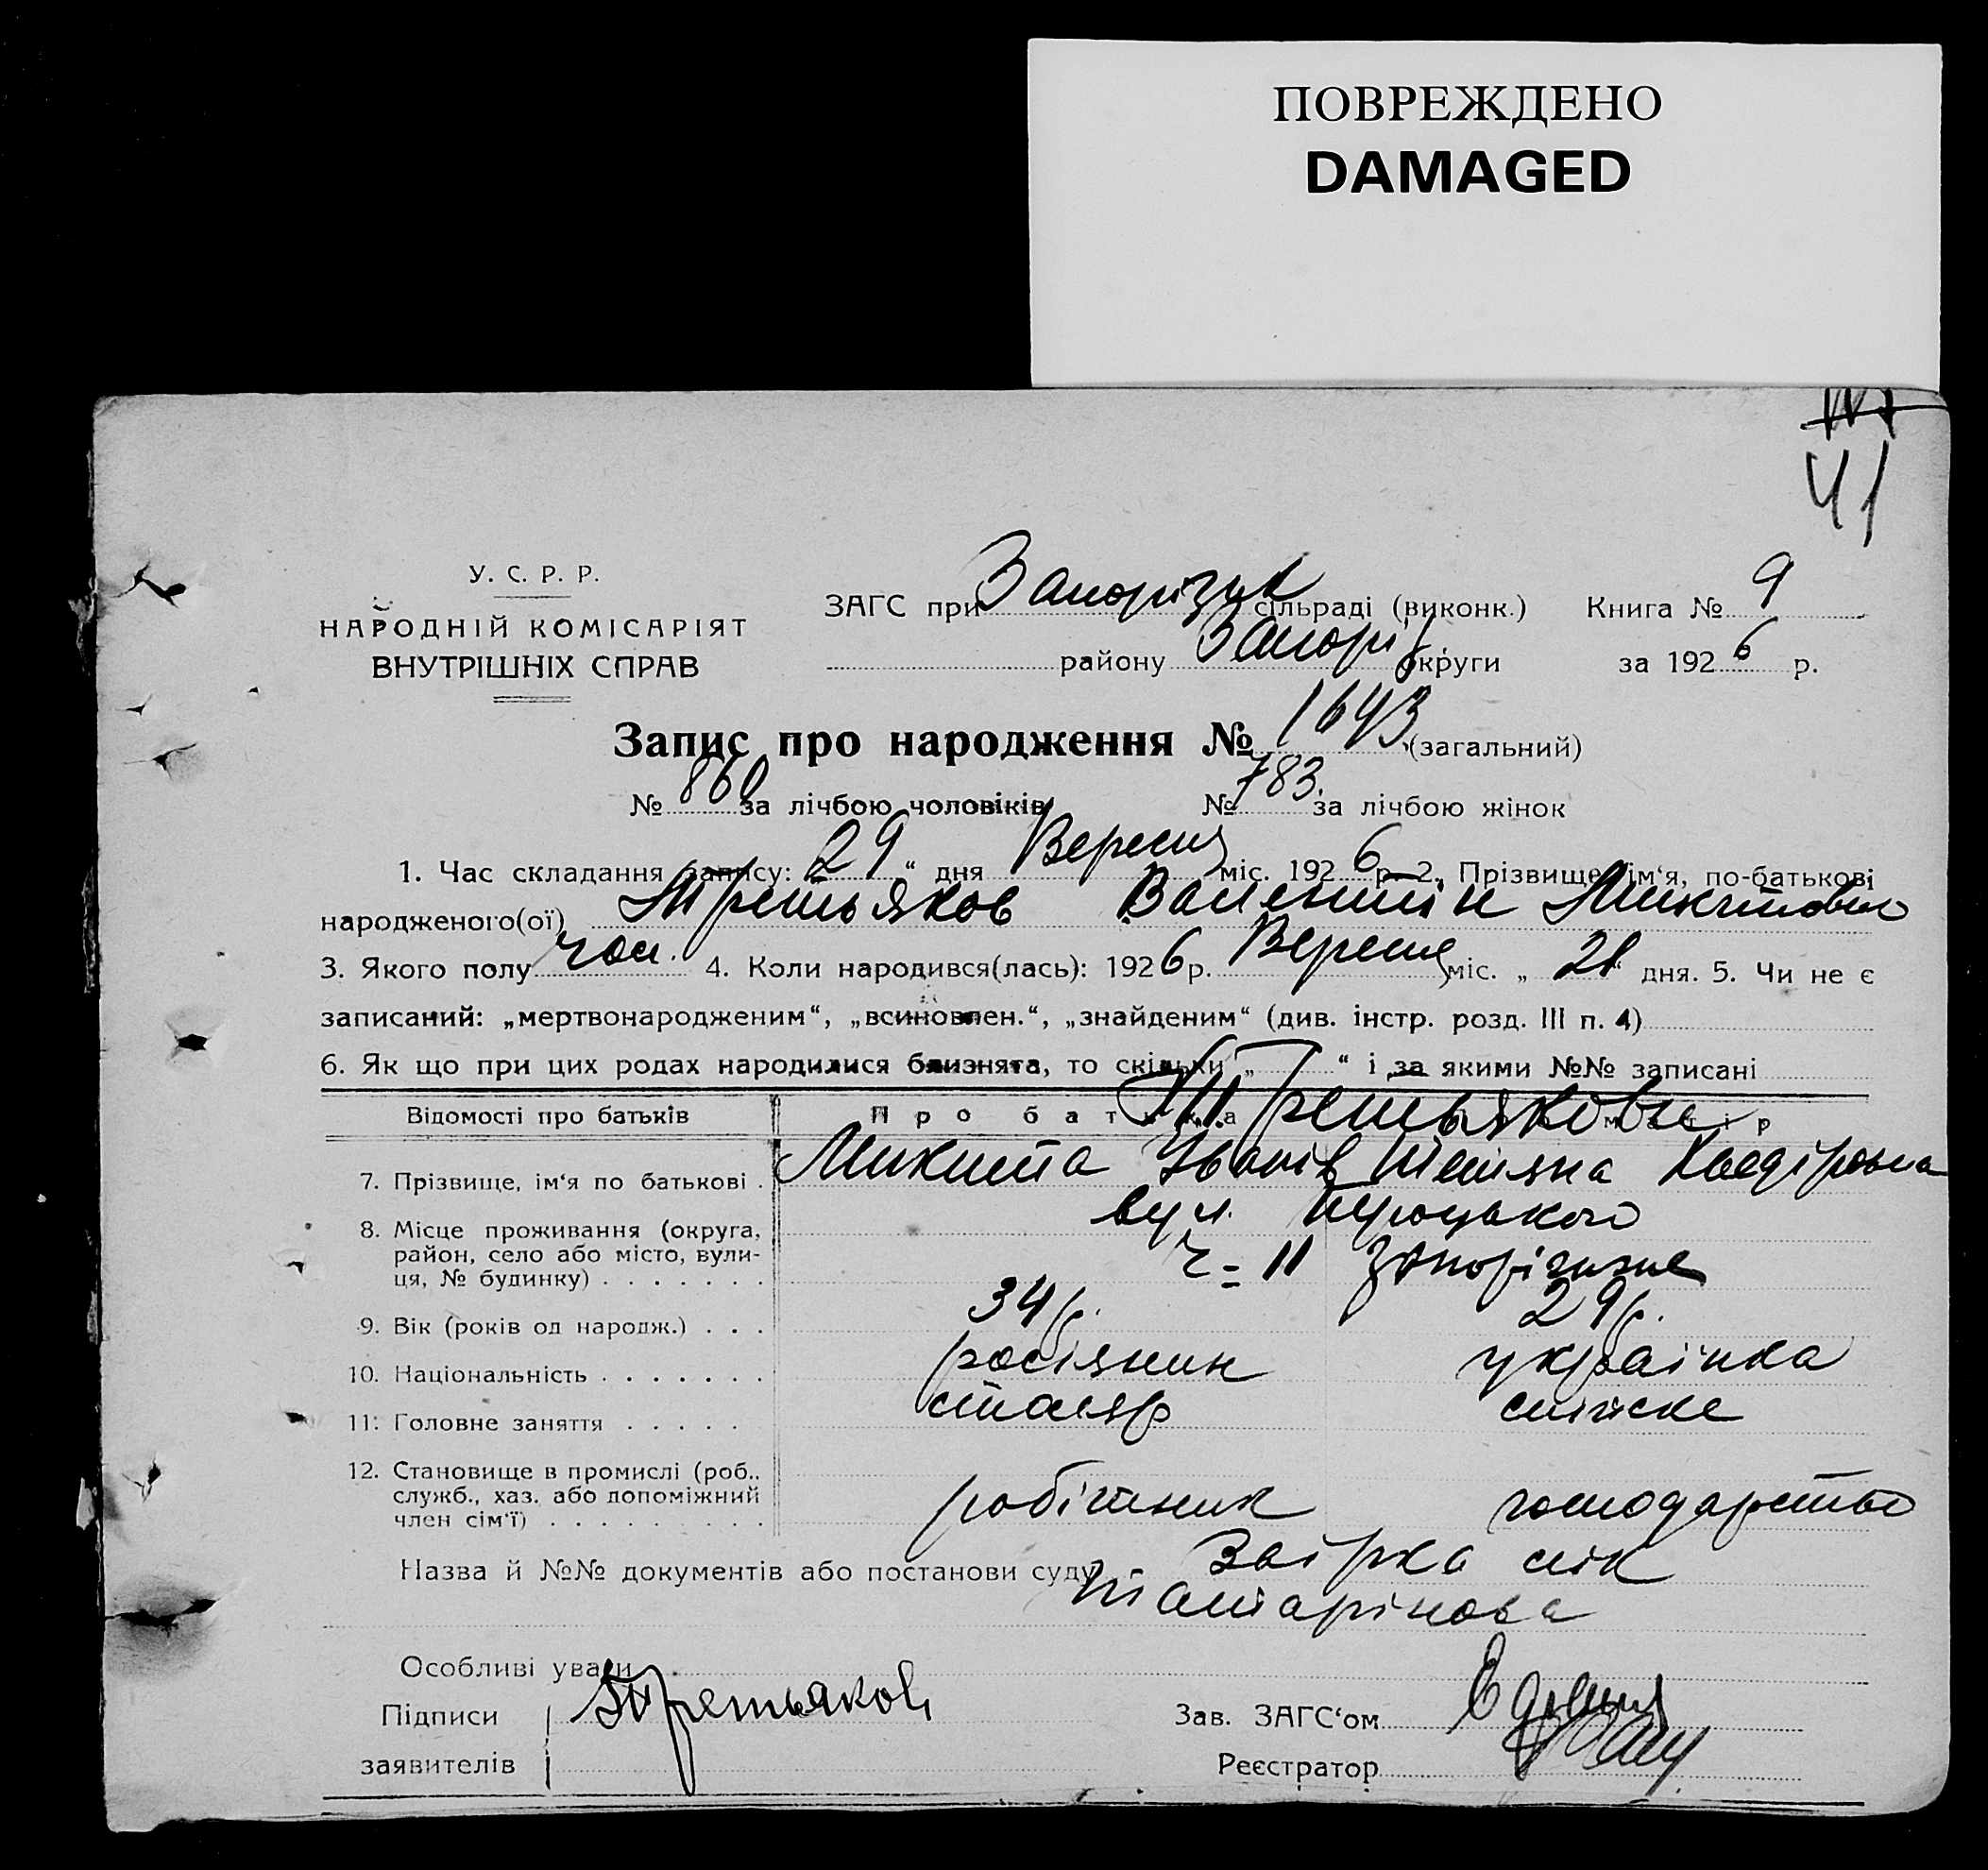 ПОВРЕЖДЕНО
DAMAGED
41
У. С. Р. Р.
НАРОДНІЙ КОМІСАРІЯТ
ВНУТРІШНІХ СПРАВ
ЗАГС при Запорізьк сільраді (виконк.) Книга № 9
району Запоріз округи за 1926 р.
Запис про народження № 1643 (загальний)
№ 860 за лічбою чоловіків № 783. за лічбою жінок
1. Час складання запису: 29 “ дня Вересня міс. 1926 р. 2. Прізвище, ім‘я, по-батькові
народженого(ої) Третьяков Валентин Микитович
3. Якого полу чол. 4. Коли народився(лась): 1926 р. Вересня міс. „ 21 “ дня. 5. Чи не є
записаний: „мертвонародженим“, „всиновлен.“, „знайденим“ (див. інстр. розд. III п. 4)
6. Як що при цих родах народилися близнята, то скільки „ “ і за якими №№ записані
Відомості про батьків Про батька матір
Третьякови
7. Прізвище, ім‘я по батькові . Микита Іванів Тетяна
8. Місце проживання (округа, район, село або місто, вули-ця, № будинку) . . . . . . . вул. Троцького
ч = 11 Запоріжжє
9. Вік (років од народж.) . . . 34 р. 29 р.
10. Національність . . . . . . . росіянин українка
11. Головне заняття . . . . . столяр
12. Становище в промислі (роб..
служб., хаз. або допоміжний
член сім‘ї) . . . . . . . . . робітник господарство
Назва й №№ документів або постанови суду Довірка лік
Татарінова
Особливі уваги
Підписи Третьяков Зав. ЗАГС‘ом
заявителів Реєстратор